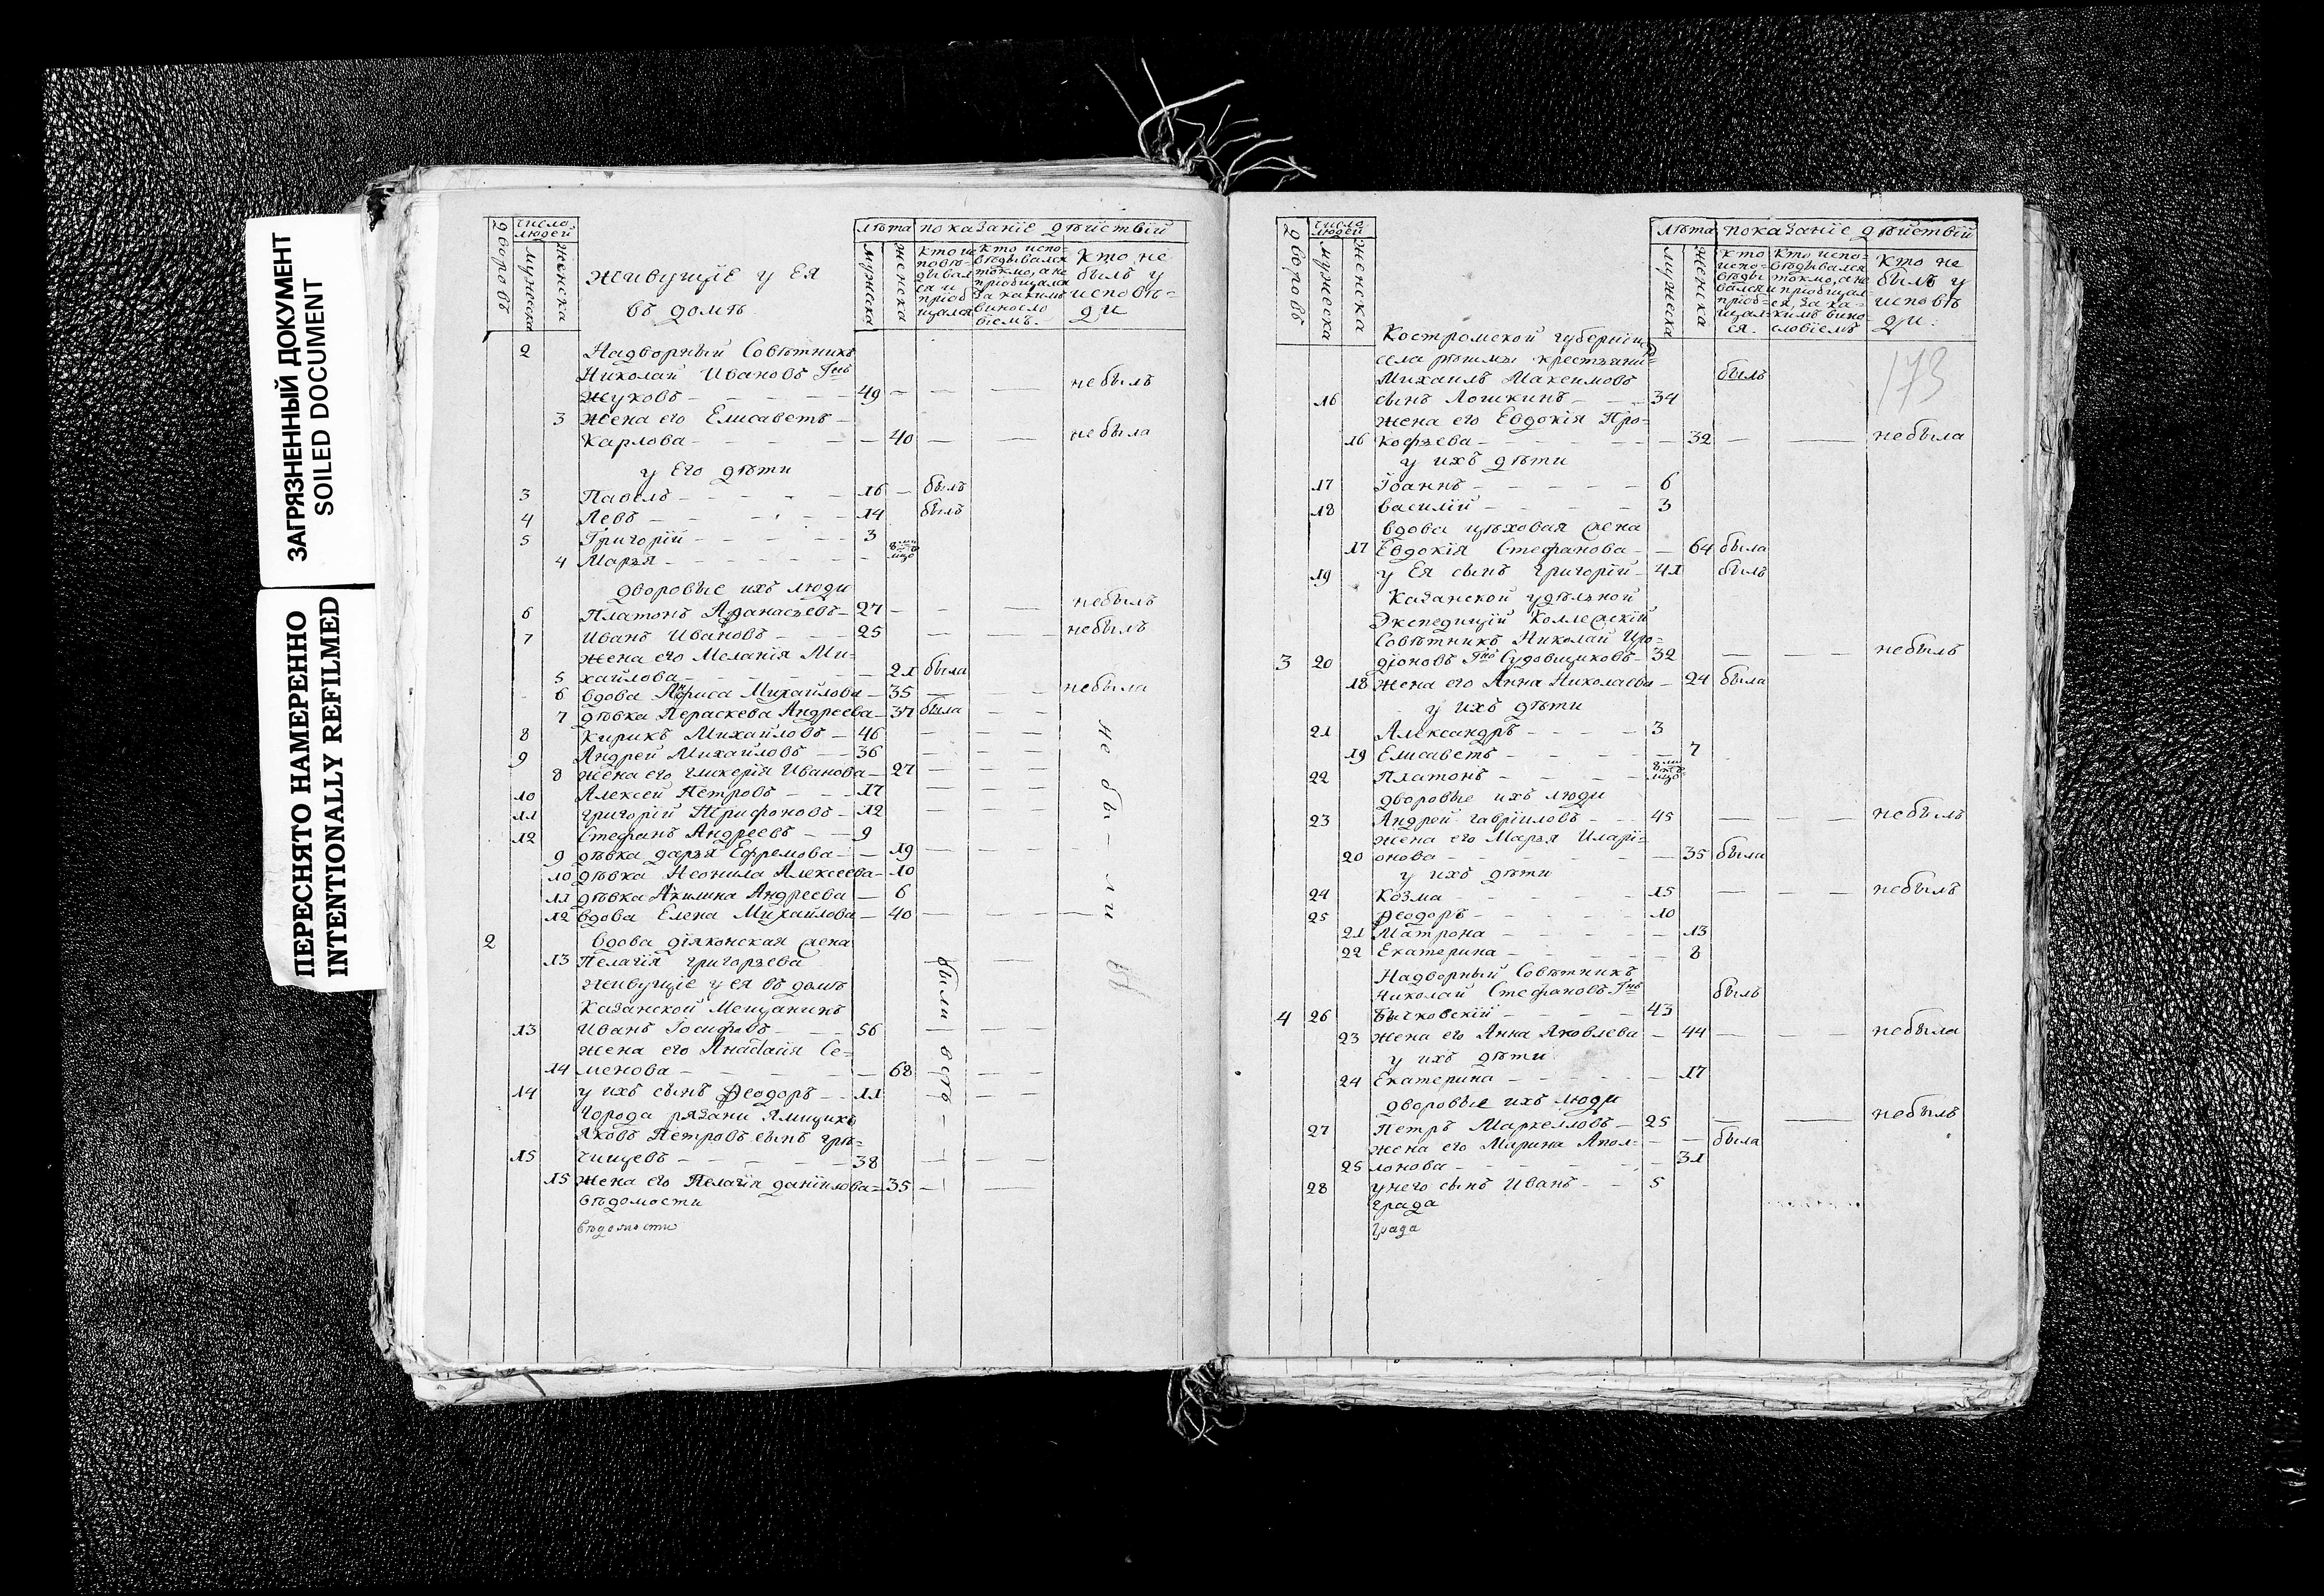 ЗАГРЯЗНЕННЫЙ ДОКУМЕНТ
SOILED DOCUMENT
ПЕРЕСНЯТО НАМЕРЕННО
INTENTIONALLY REFILMED
дворовъ
число людей
мужеска
женска
живущіе у ея
въ домѣ
лѣта
мужеска
женска
показаніе дѣйствій
кто не былъ у исповѣ=ди
2 Надворный Совѣтникъ
Николай Ивановъ Гнъ
Жуковъ 49 — — небылъ
3 жена его Елисаветъ
Карлова — 40 — — небыла
у Его дѣти
3 Павелъ 16 — былъ
4 Левъ 14 былъ
5 Григорій 3
4 Марья
дворовые ихъ люди
6 Платонъ Афанасьевъ 27 — — небылъ
7 Иванъ Ивановъ 25 — — небылъ
жена его Меланія Ми=
5 хайлова 21 была
6 вдова Михайлова 35 — — небыла
7 дѣвка Пераскева Андреева 37 была — —
8 Кирикъ Михайловъ 46 — — —
9 Андрей Михайловъ 36 — — —
8 жена его гликерія Иванова 27 — — —
10 Алексей Петровъ 17 — — —
11 григорій Трифоновъ 12 — — —
12 Стефанъ Андреевъ 9
9 дѣвка дарья Ефремова 19 — — —
10 дѣвка Неонила Алексеева 10
11 дѣвка Акилина Андреева 6
12 вдова Елена Михайлова 40 — — —
не бы-ли
2 вдова діяконская жена
13 Пелагія григорьева
живущіе у ея въ домѣ
Казанской Мещанинъ
13 Иванъ Іосифовъ 56 — — —
жена его Анастасія Се=
14 менова 68 — — —
14 у ихъ сынъ Ѳеодоръ 11
города рязани Ямщикъ
Яковъ Петровъ сынъ
15 38 — — —
15 жена его Пелагія даніилова 35 — —
были
вѣдомости
вѣдомости
дворовъ
число людей
мужеска
женска
лѣта
мужеска
женска
показаніе дѣйствій
кто испо=вѣдывался и пріоб=щал=ся.
кто испо=вѣдывался токмо, а не пріобщал=ся, за ка=кимъ вино=словіемъ
кто не былъ у исповѣ ди.
173
Костромской губерніи
села рѣшмы крестьяни=
Михаилъ Максимовъ былъ
16 сынъ Лошкинъ 34
жена его Евдокія Про=
16 кофьева — 32 — — небыла
у ихъ дѣти
17 Іоаннъ 6
18 василій 3
вдова цѣховая жена
17 Евдокія Стефанова — 64 была
19 у Ея сынъ григорій 41 былъ
Казанской удѣльной
Экспедицій Коллежскій
Совѣтникъ Николай Иро=
3 20 діоновъ Гнъ Судовщиковъ 32 — — — небылъ
18 жена его Анна Николаева — 24 была
у ихъ дѣти
21 Александръ 3
19 Елисаветъ — 7
22 Платонъ
дворовые ихъ люди
23 Андрей гавріиловъ 45 — — — небылъ
жена его Марья Иларі=
20 онова — 35 была
у ихъ дѣти
24 Козма 15 — — — небылъ
25 Ѳеодоръ 10
21 Матрона — 13
22 Екатерина — 8
Надворный Совѣтникъ
Николай Стефановъ Гнъ былъ
4 26 Бычковскій 43
23 жена его Анна Яковлева — 44 — — небыла
у ихъ дѣти
24 Екатерина — 17
дворовые ихъ люди
27 Петръ Маркелловъ 25 — — небылъ
жена его Марина Апол= — — была
25 лонова — 31
28 унего сынъ Иванъ 5
града
града